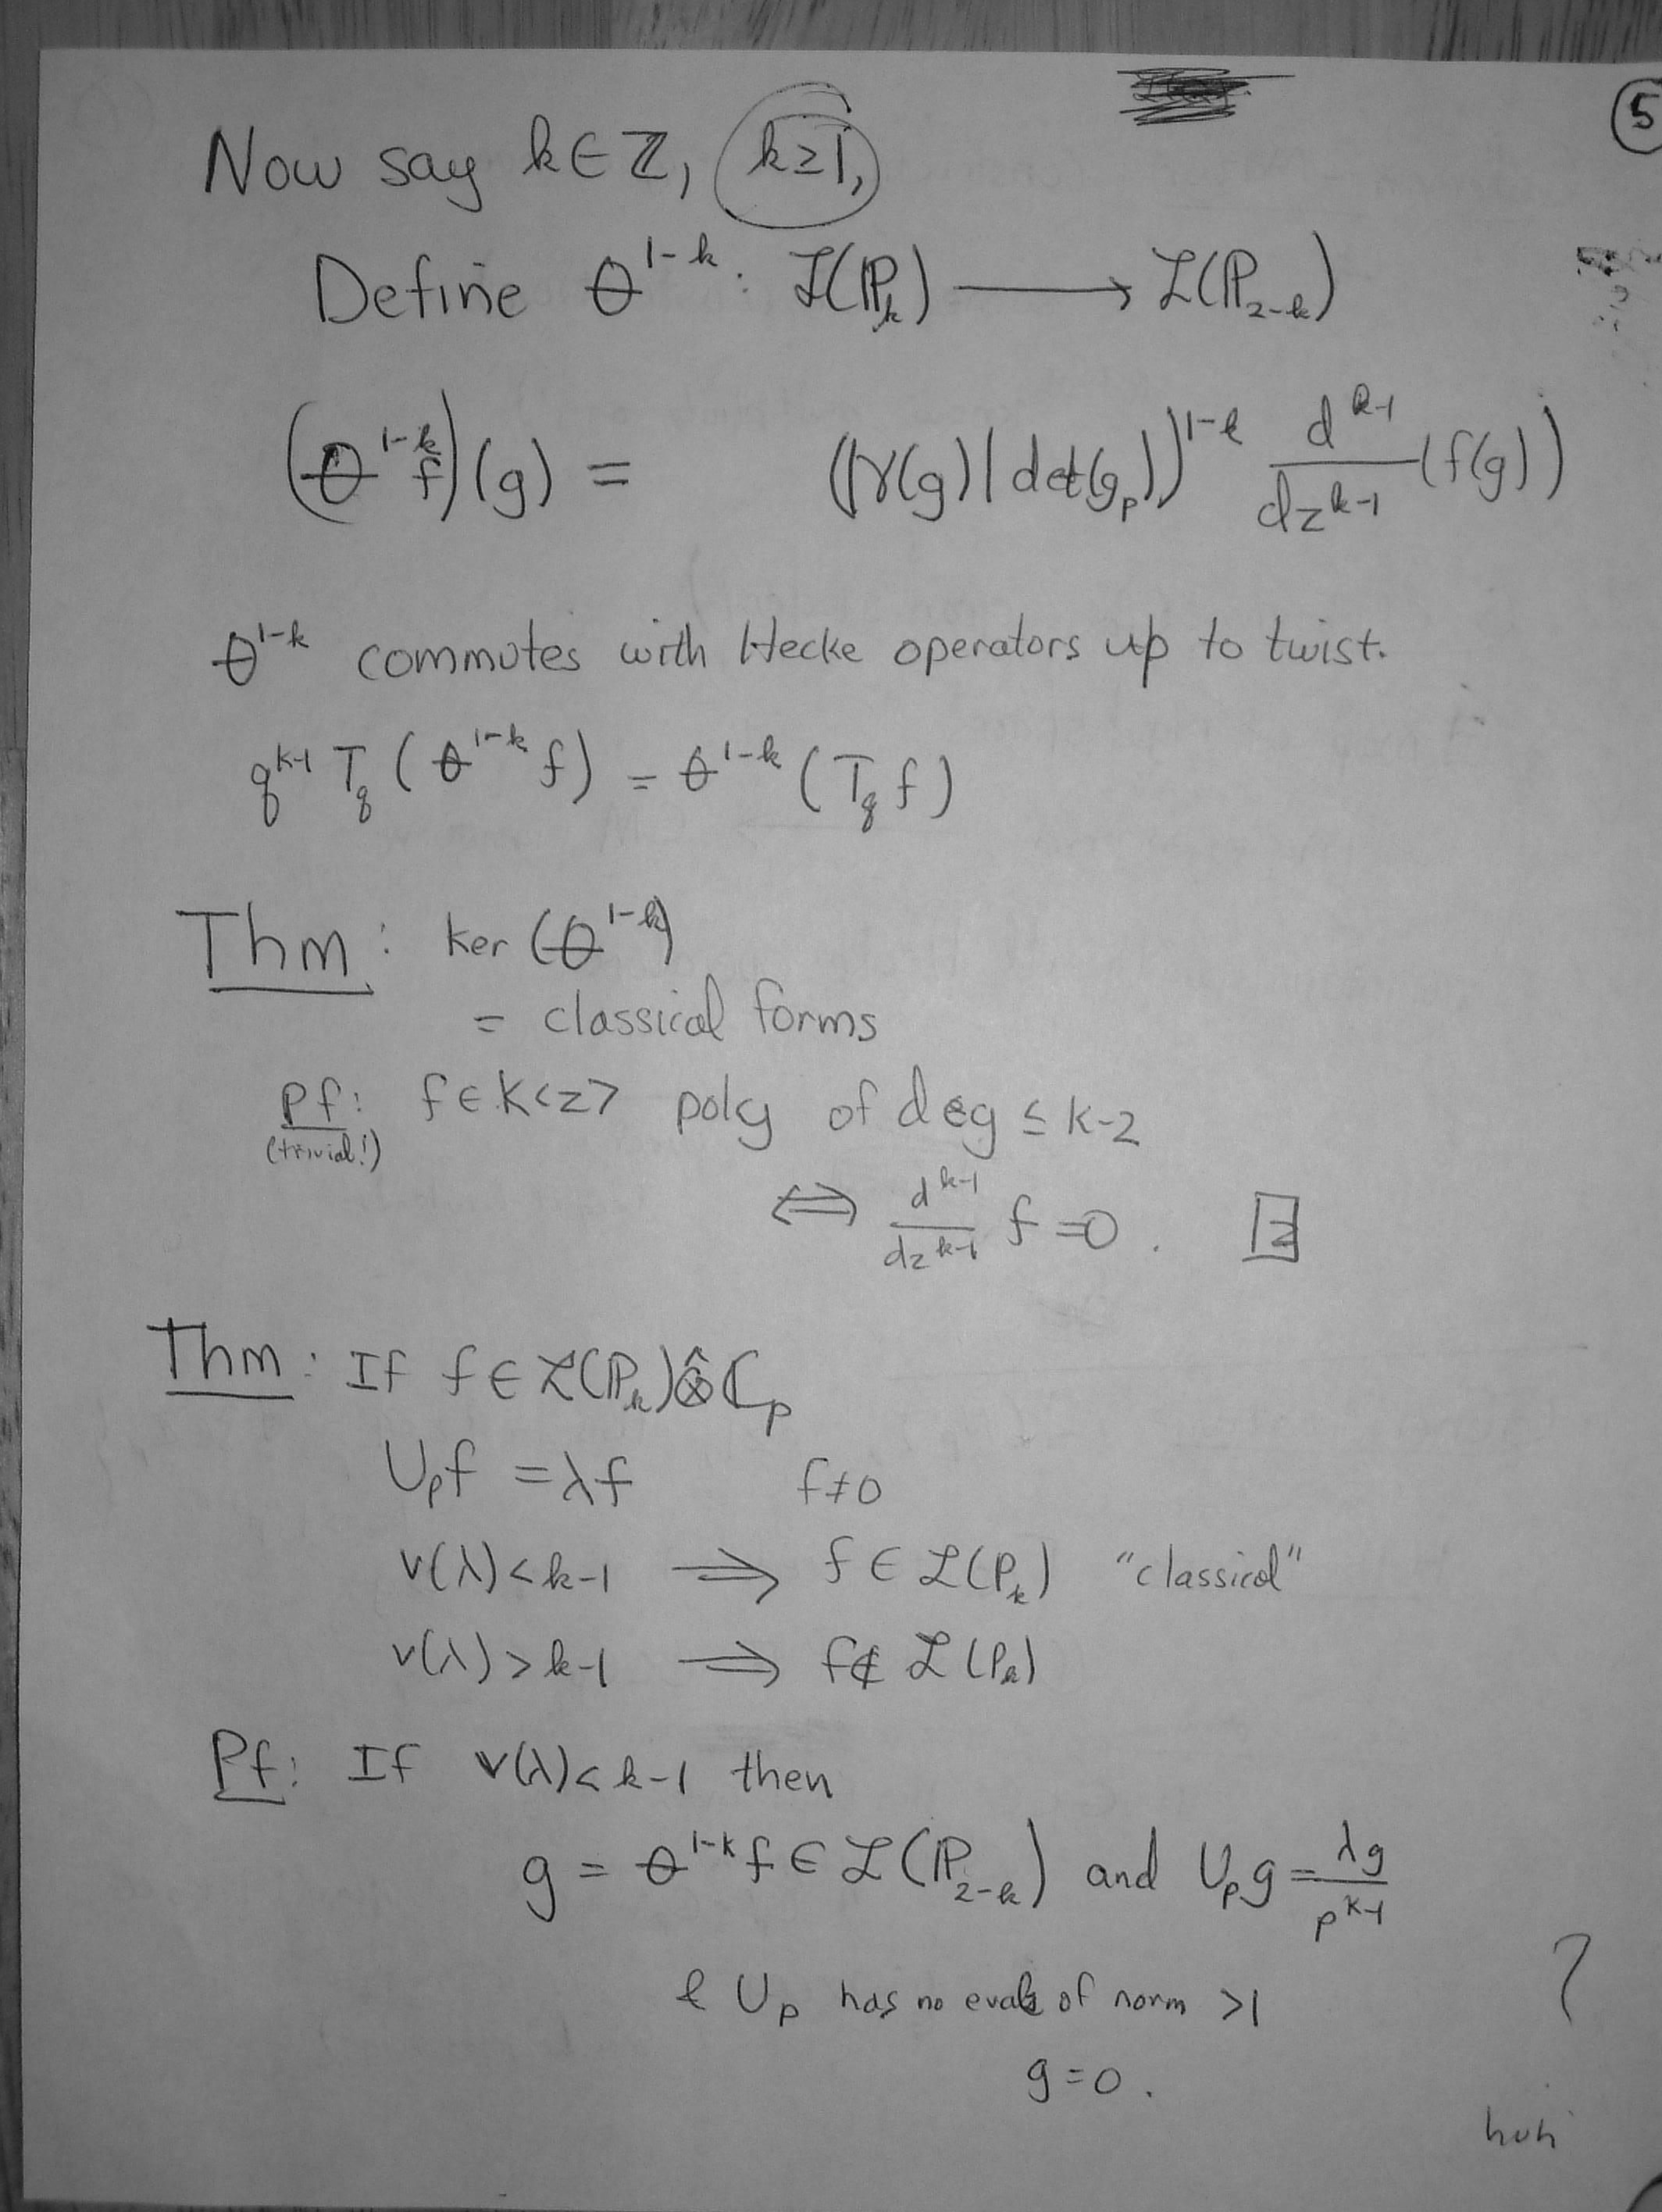 5
Now say k∈ℤ, k≥1,
Define θ^{1-k}: ℒ(ℙ_k) ⟶ ℒ(ℙ_{2-k})
(θ^{1-k}f)(g) = (|γ(g)| det(g_p))^{1-k} d^{k-1}/dz^{k-1} (f(g))
θ^{1-k} commutes with Hecke operators up to twist.
q^{k-1} T_q (θ^{1-k} f) = θ^{1-k} (T_q f)
Thm: ker (θ^{1-k})
= classical forms
pf: f∈K<z> poly of deg ≤ k-2
(trivial!)
⟺ d^{k-1}/dz^{k-1} f = 0.
Thm: If f ∈ ℒ(ℙ_k) ⊗̂ ℂ_p
U_p f = λf f≠0
v(λ)<k-1 ⟹ f ∈ ℒ(P_k) "classical"
v(λ)>k-1 ⟹ f∉ ℒ(P_k)
Pf: If v(λ)<k-1 then
g = θ^{1-k} f ∈ ℒ(ℙ_{2-k}) and U_p g = λg/p^{k-1}
& U_p has no evals of norm >1 ?
g=0.
huh